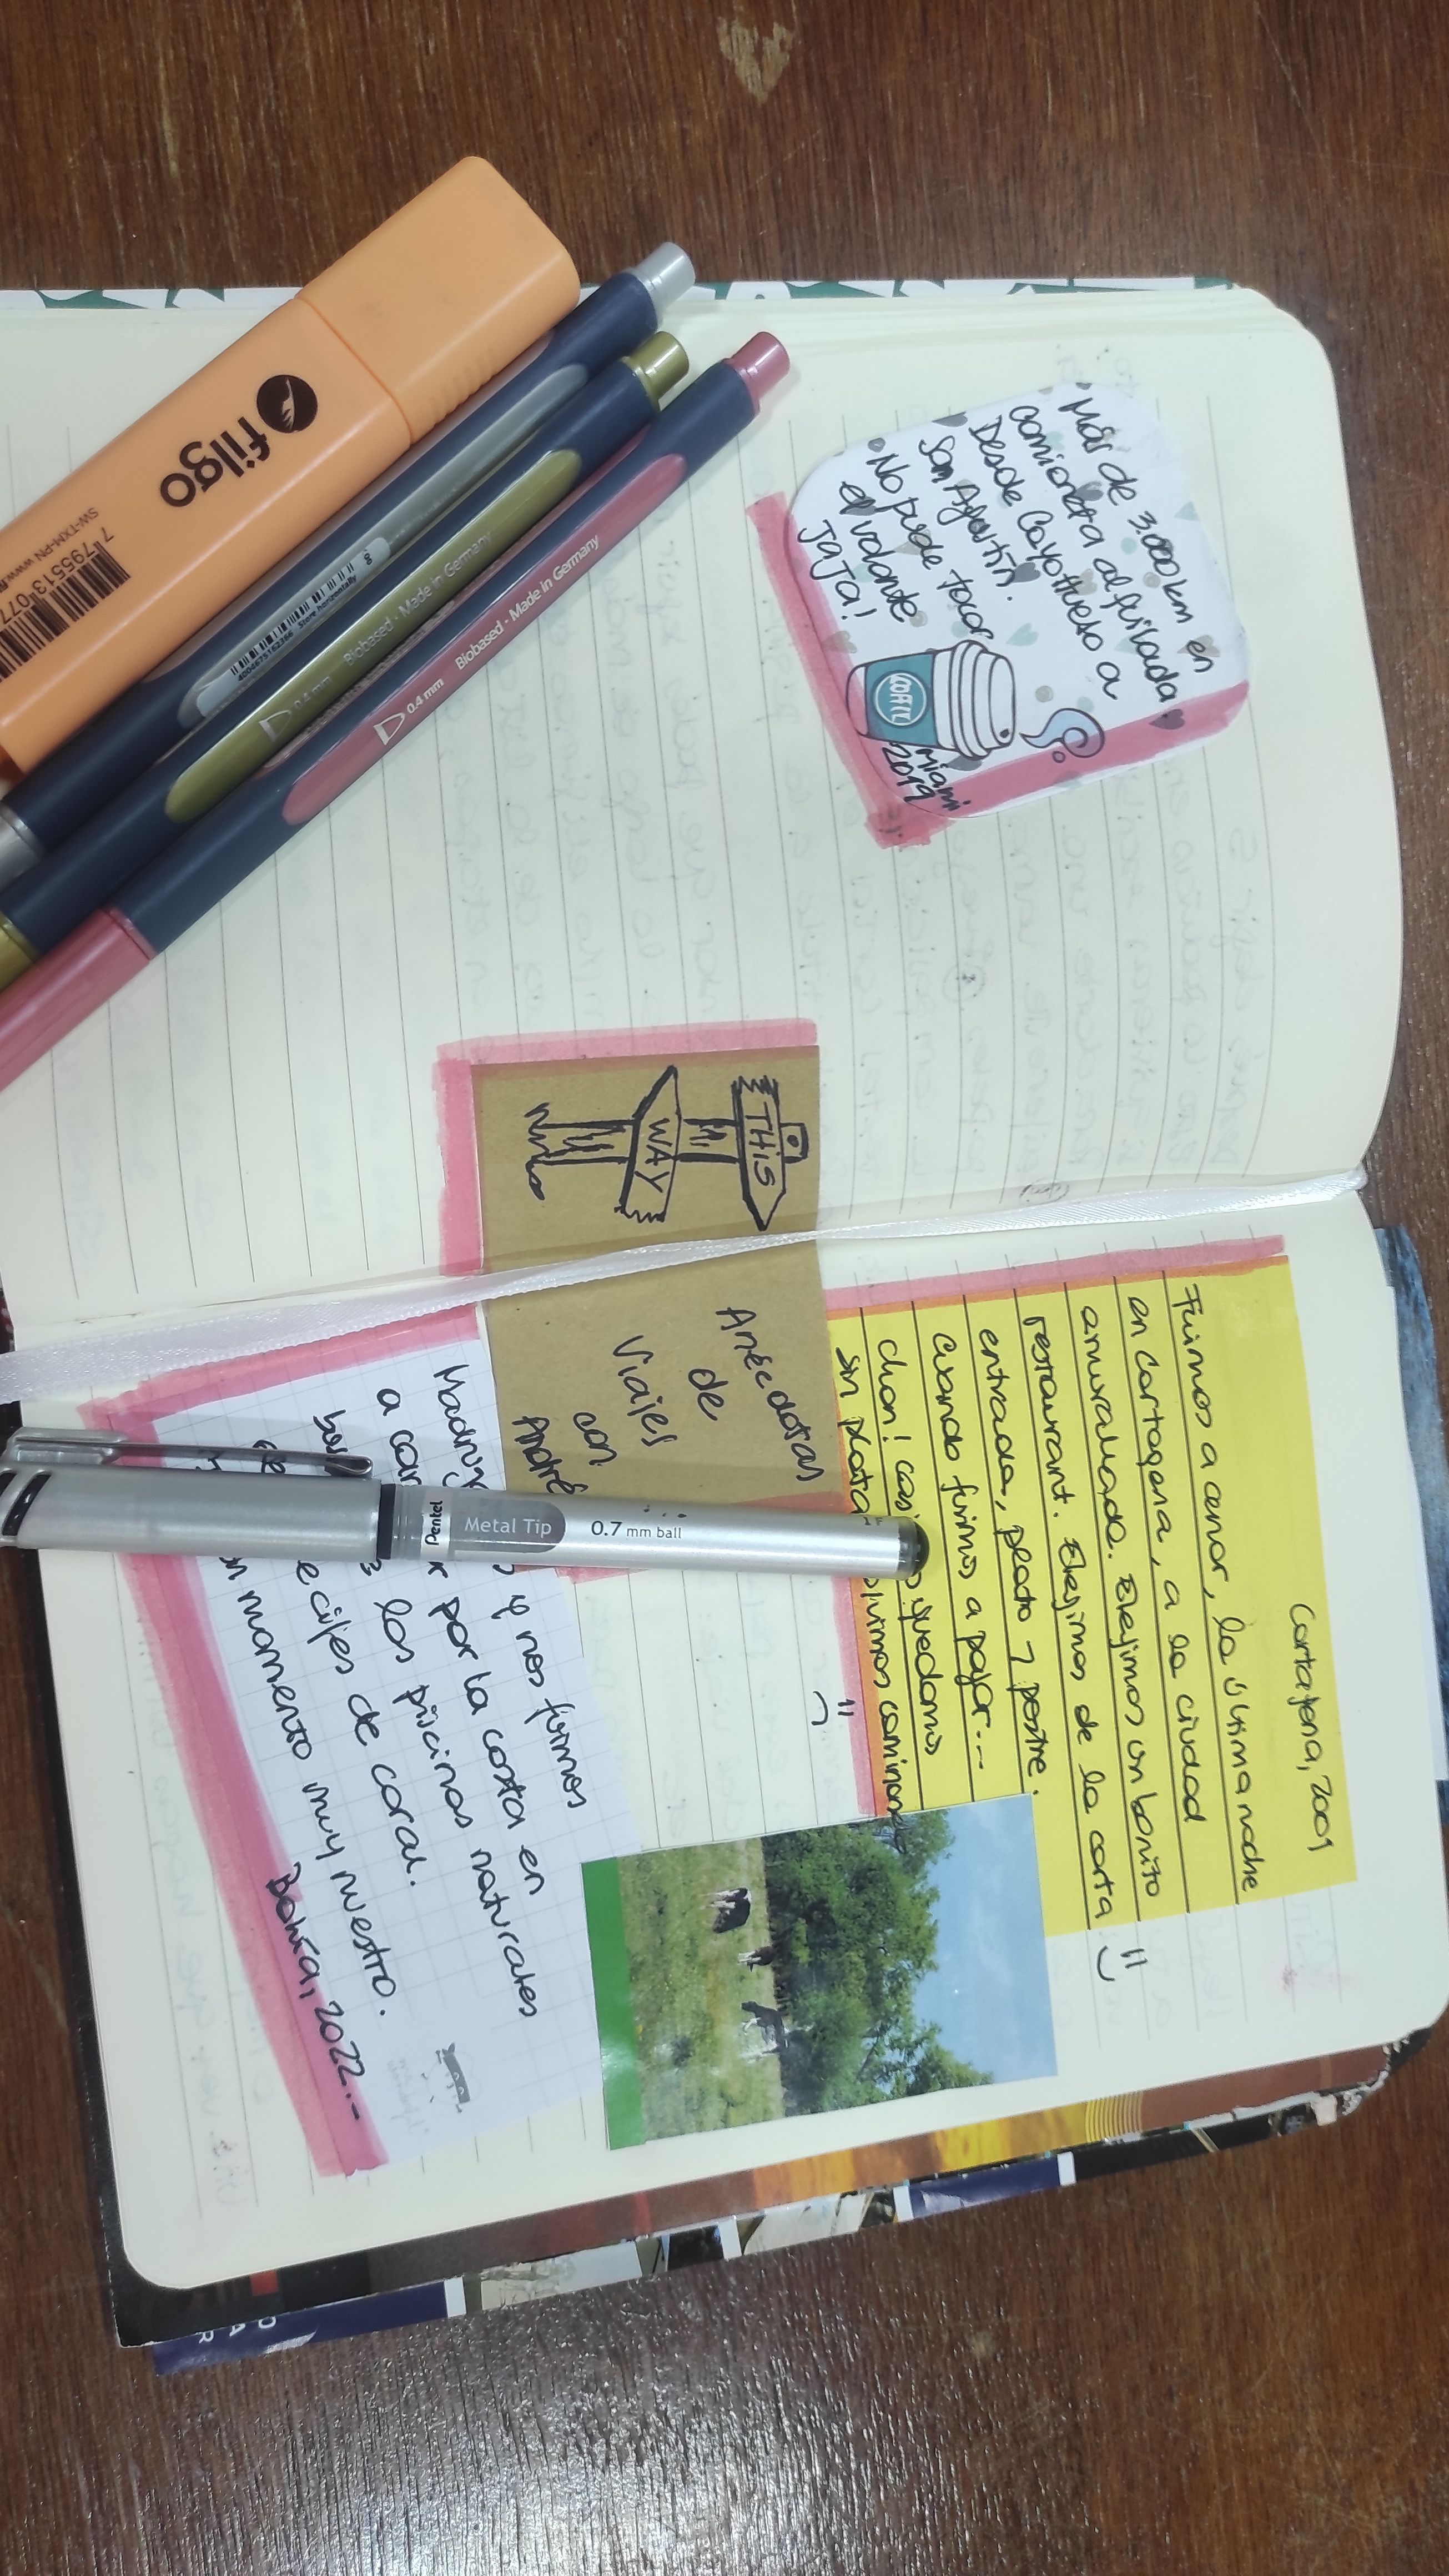 Más de 3.000 km en
camioneta alquilada
Desde Cayo Hueso a
San Agustín.
No pude tocar
el volante
JAJA!
COFFEE
Miami
2019
THIS
WAY
Anécdotas
de
Viajes
con
André
Cartagena, 2009
Fuimos a cenar, la última noche
en Cartagena, a la ciudad
amurallada. Elegimos un bonito
restaurant. Elegimos de la carta
entrada, plato y postre.
Cuando fuimos a pagar...
chan! casi quedamos
sin plata caminan
y nos fuimos
a por la costa en
las piscinas naturales
de coral.
momento muy nuestro.
Bahía, 2022.-
filgo
SW-TXM-PN www.fi
7 795513 077
4004675162366 Store horizontally
0.4 mm Biobased - Made in Germany
0.4 mm Biobased - Made in Germany
Pentel Metal Tip 0.7 mm ball